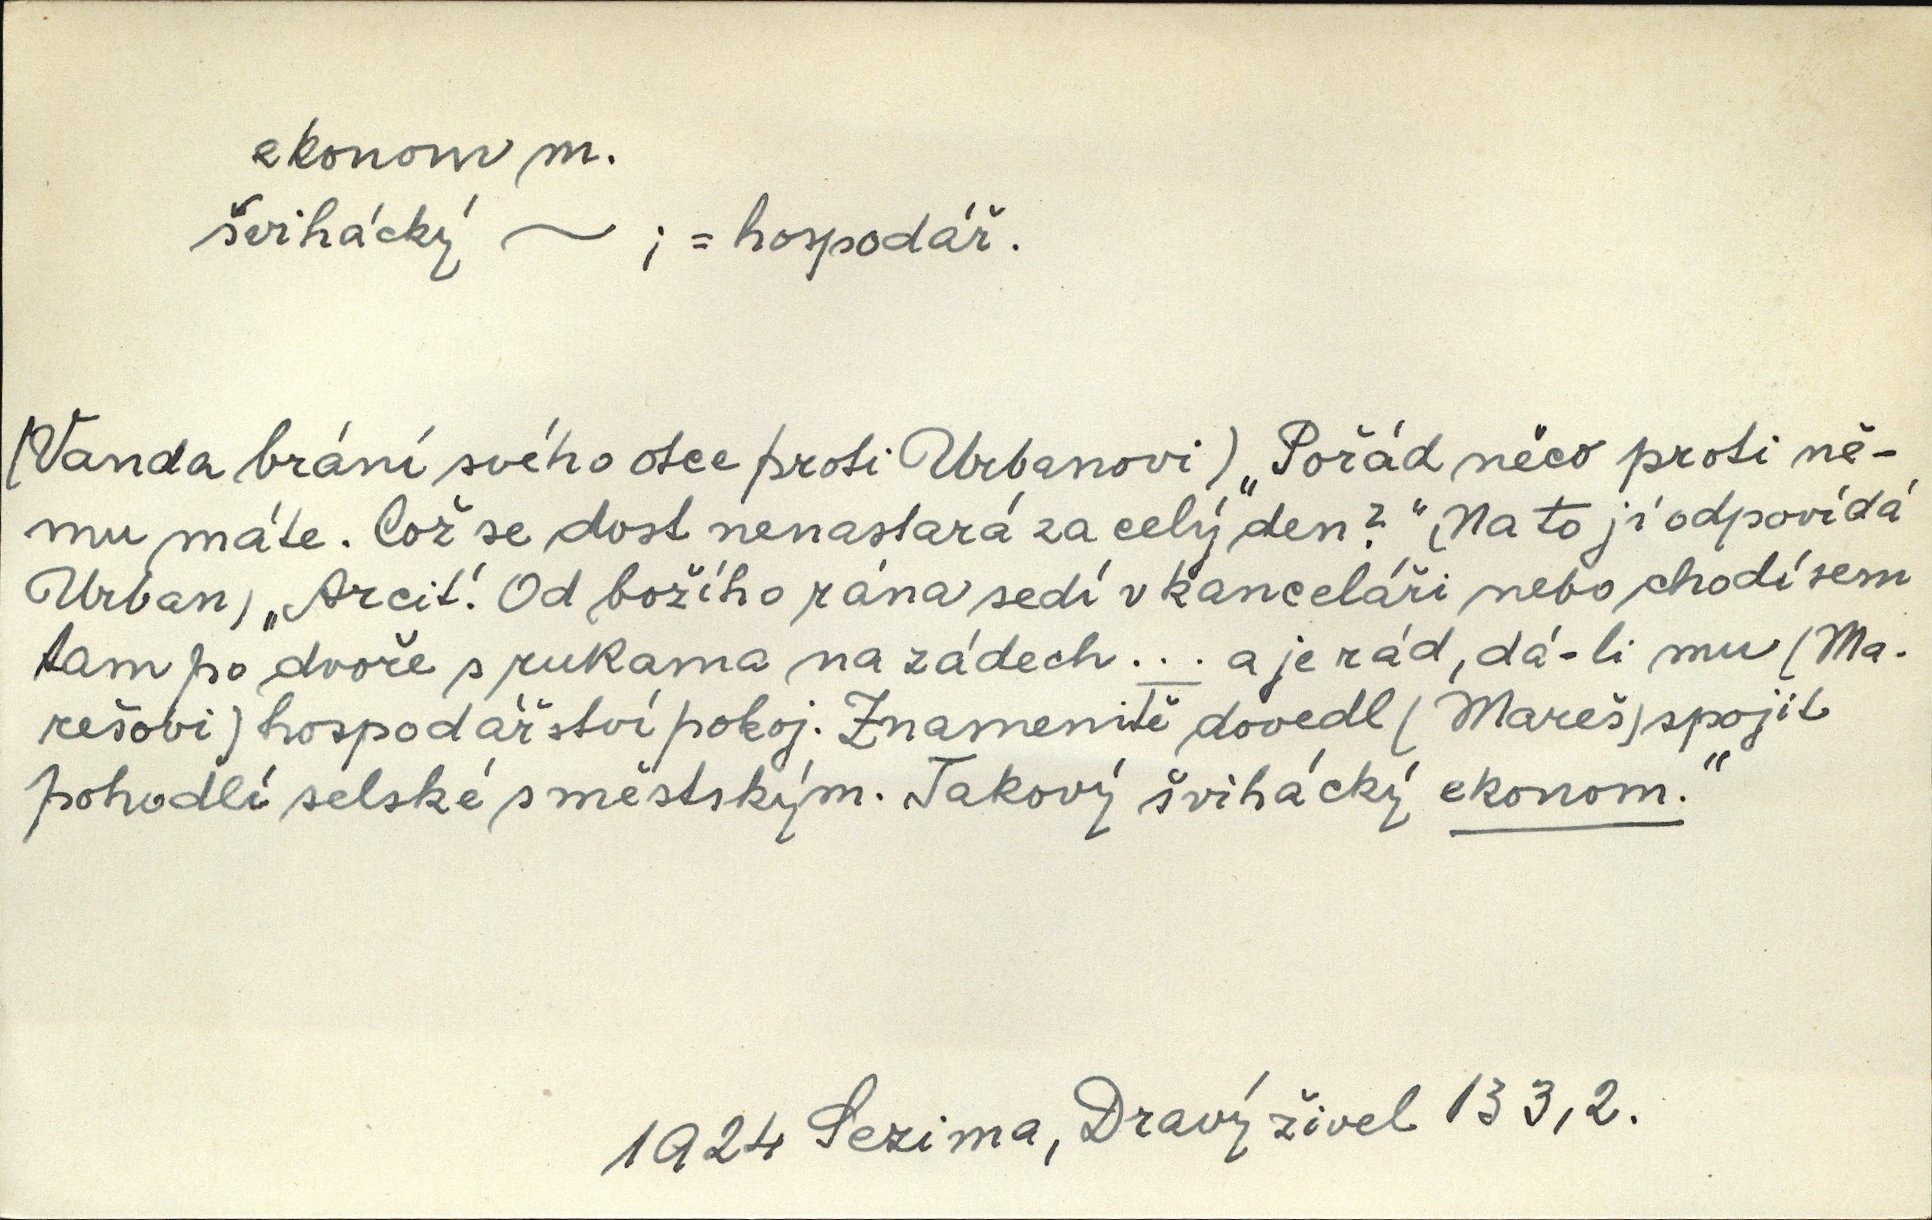 ekonom m.
švihácký ~ ; = hospodář.
(Vanda brání svého otce proti Urbanovi) „Pořád něco proti ně-
mu máte. Což se dost nenastará za celý den?“ (Na to jí odpovídá
Urban) „Arciť! Od božího rána sedí v kanceláři nebo chodí sem
tam po dvoře s rukama na zádech ... a je rád, dá-li mu (Ma-
rešovi) hospodářství pokoj. Znamenitě dovedl (Mareš) spojit
pohodlí selské s městským. Takový švihácký ekonom.“
1924 Sezima, Dravý živel 133,2.